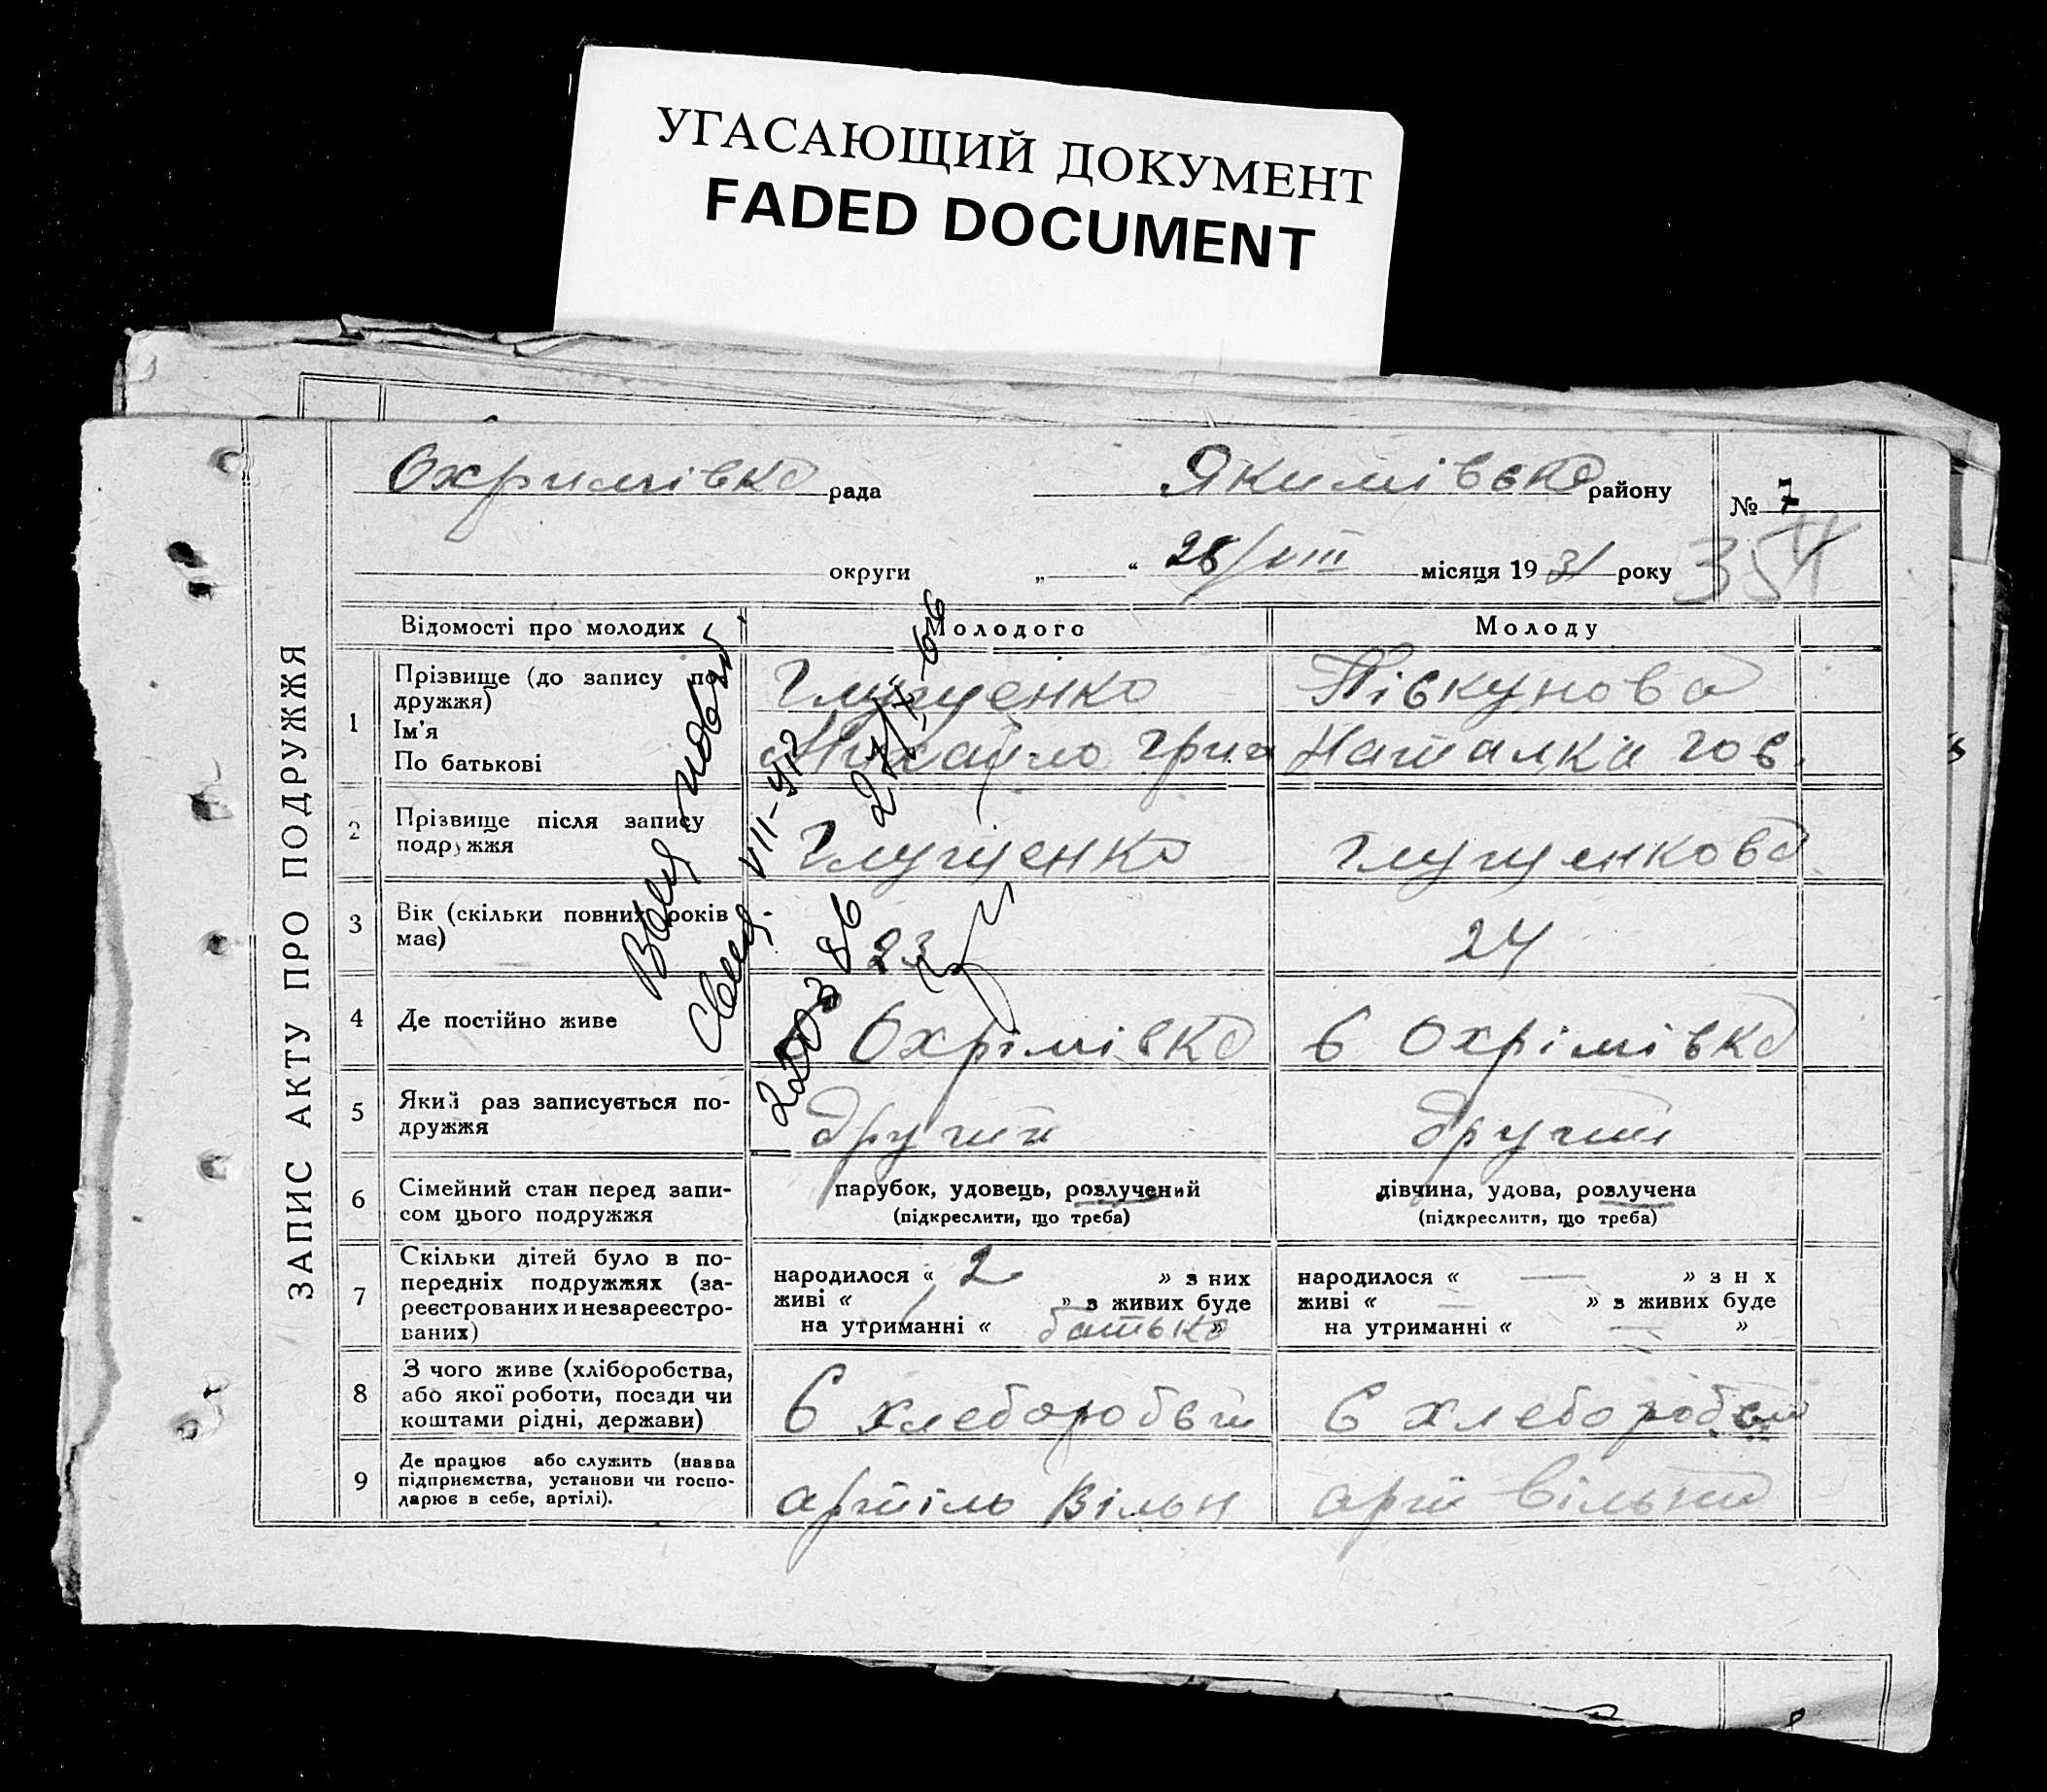 УГАСАЮЩИЙ ДОКУМЕНТ
FADED DOCUMENT
ЗАПИС АКТУ ПРО ПОДРУЖЖЯ
Охримівка рада Якимівска району № 7
округи „ “ 28/VIII місяця 1931 року 354
Відомості про молодих Молодого Молоду
1 Прізвище (до запису подружжя) Глущенко Півкунова
Ім'я
По батькові Михайло Григ Наталка Гов.
2 Прізвище після запису подружжя Глущенко Глущенкова
3 Вік (скільки повних років має) 23 24
4 Де постійно живе Охрімівка б Охрімівка
5 Який раз записується подружжя другий другий
6 Сімейний стан перед записом цього подружжя
парубок, удовець, розлучений
(підкреслити, що треба)
дівчина, удова, розлучена
(підкреслити, що треба)
7 Скільки дітей було в попередніх подружжях (зареєстрованих и незареєстрованих)
народилося « 2 » з них
живі « 1 » з живих буде
на утриманні « батька »
народилося « — » з н х
живі « — » з живих буде
на утриманні « — »
8 З чого живе (хліборобства, або якої роботи, посади чи коштами рідні, держави)
9 Де працює або служить (назва підприємства, установи чи господарює в себе, артілі). артіль Вільн арті Вільни
Выд. повт.
свид. VII-ЯР
27/X-66
8